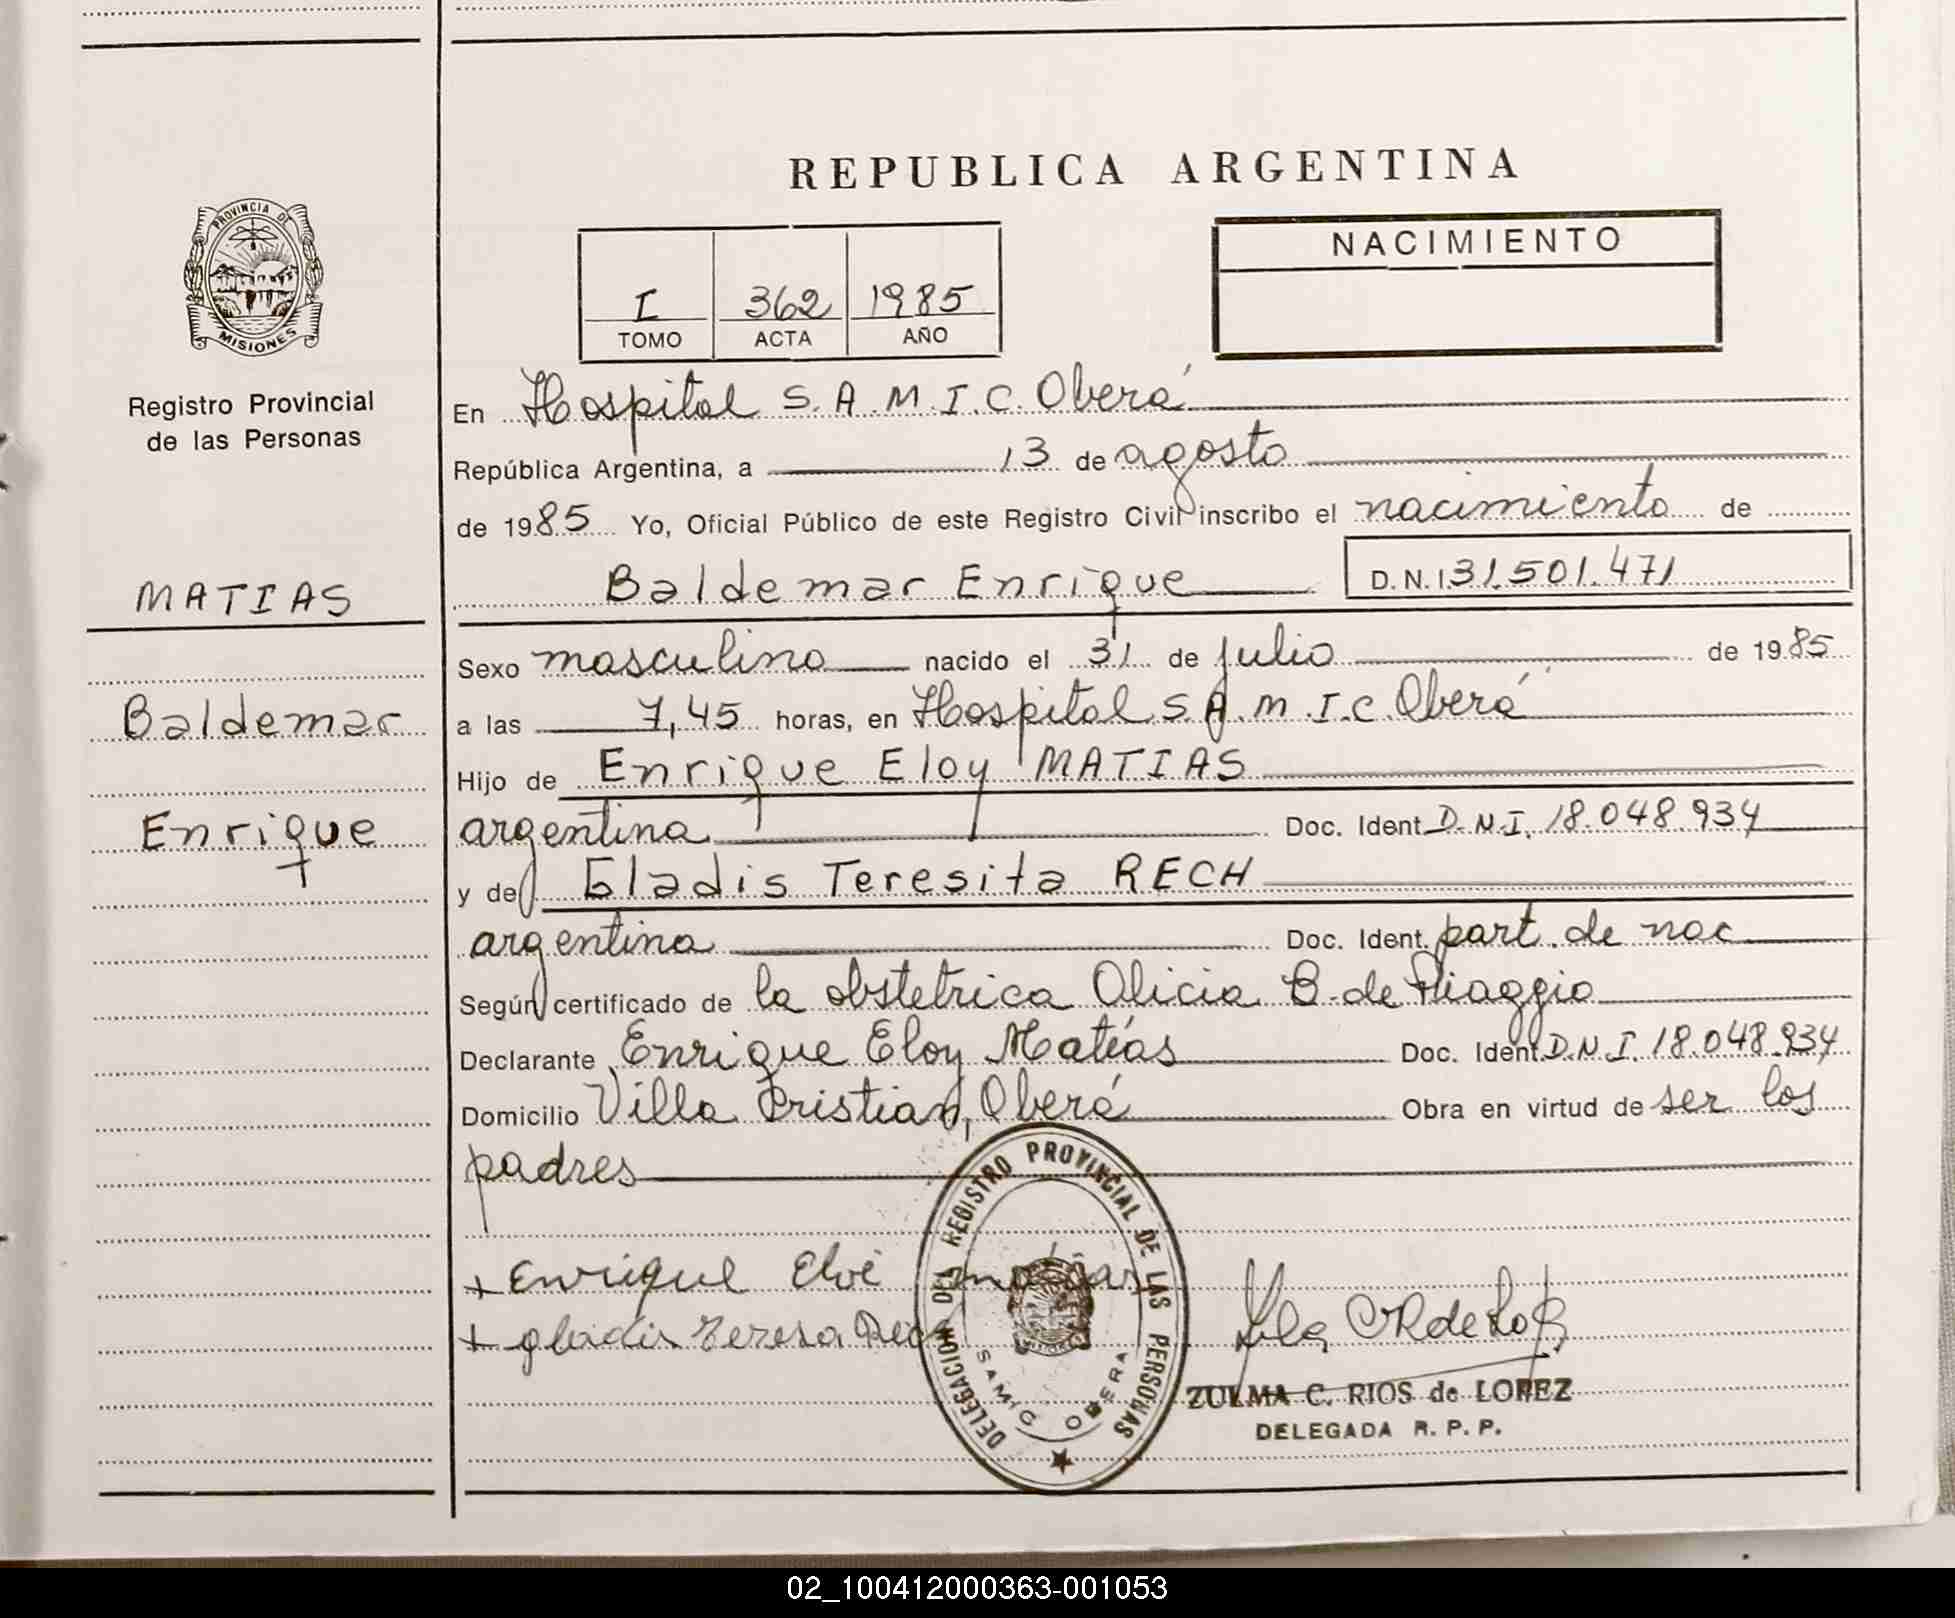 REPUBLICA ARGENTINA
PROVINCIA DE
MISIONES
Registro Provincial
de las Personas
NACIMIENTO
I 362 1985
TOMO ACTA AÑO
En Hospital S.A.M.I.C. Oberá
República Argentina, a 13 de agosto
de 1985 Yo, Oficial Público de este Registro Civil inscribo el nacimiento de
Baldemar Enrique D.N.I. 31.501.471
MATIAS
Baldemar
Enrique
Sexo masculino nacido el 31 de julio de 1985
a las 7,45 horas, en Hospital S.A.M.I.C. Oberá
Hijo de Enrique Eloy MATIAS
argentina Doc. Ident. D.N.I. 18.048.934
y de Gladis Teresita RECH
argentina Doc. Ident. part. de nac
Según certificado de la obstetrica Alicia B. de
Declarante Enrique Eloy Matías Doc. Ident. D.N.I. 18.048.934
Domicilio Villa Cristian, Oberá Obra en virtud de ser los
padres
+ Enrique
+ gladis Teresa Rech
DELEGACION DEL REGISTRO PROVINCIAL DE LAS PERSONAS
SAMIC OBERA
ZULMA C. RIOS de LOPEZ
DELEGADA R. P. P.
02_100412000363-001053